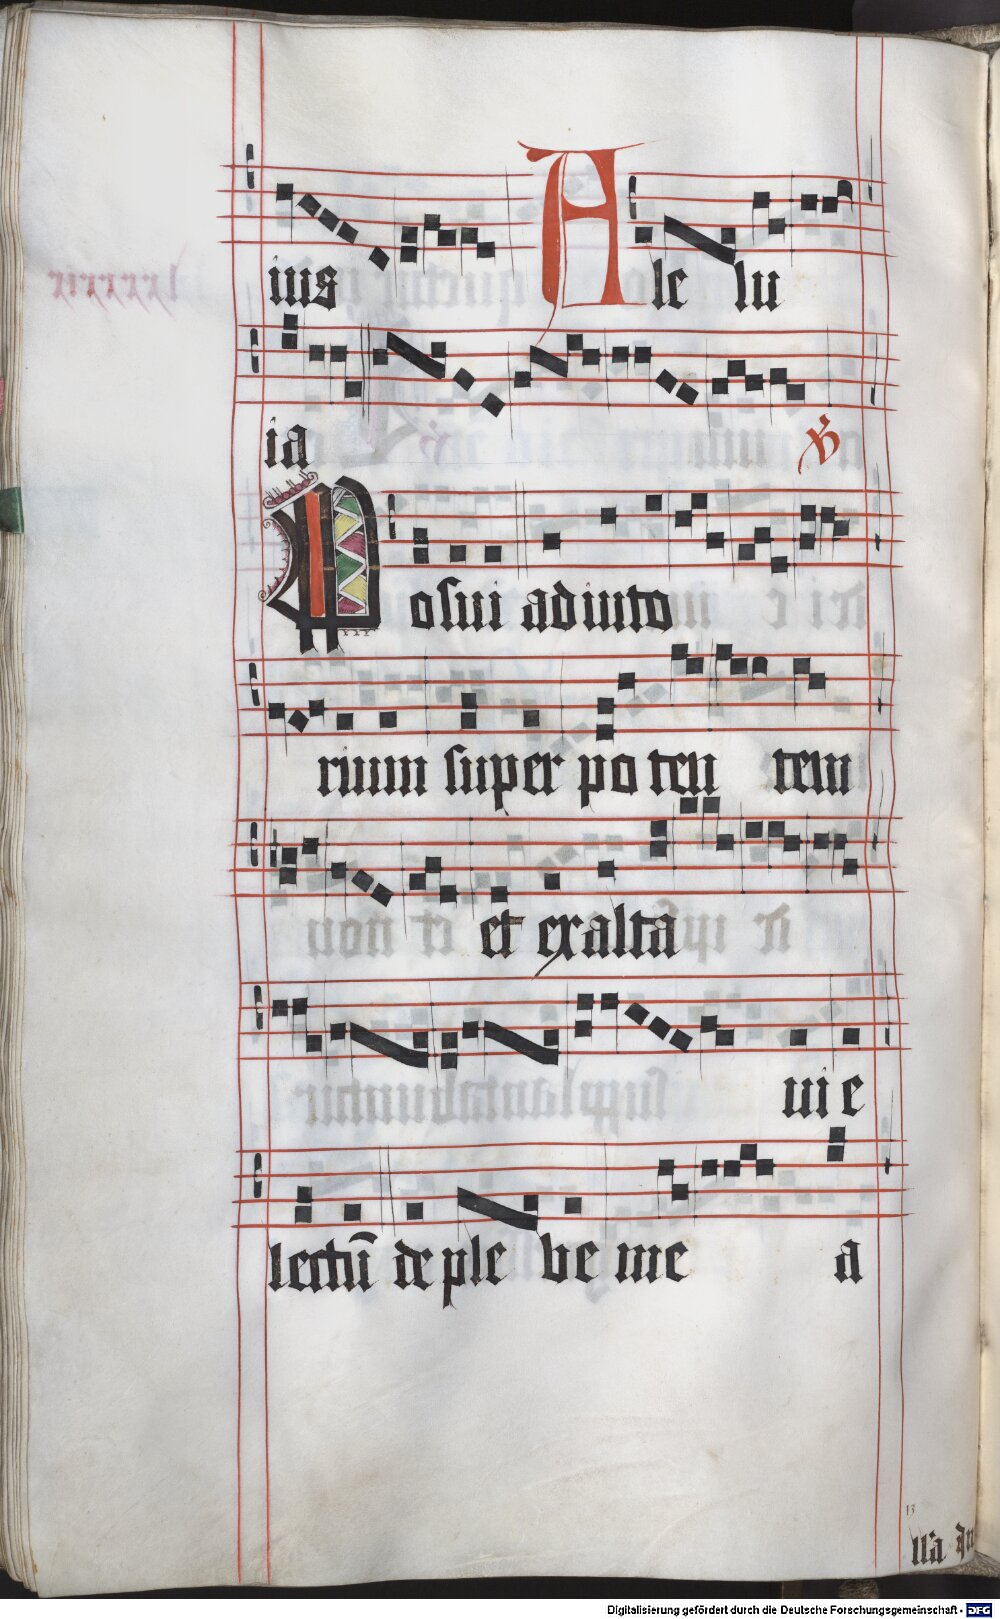 ius Ale lu
ia ℣
Posui adiuto
rium super po ten tem
et exalta
ui e
lectū de ple be me a
13
Digitalisierung gefördert durch die Deutsche Forschungsgemeinschaft - DFG